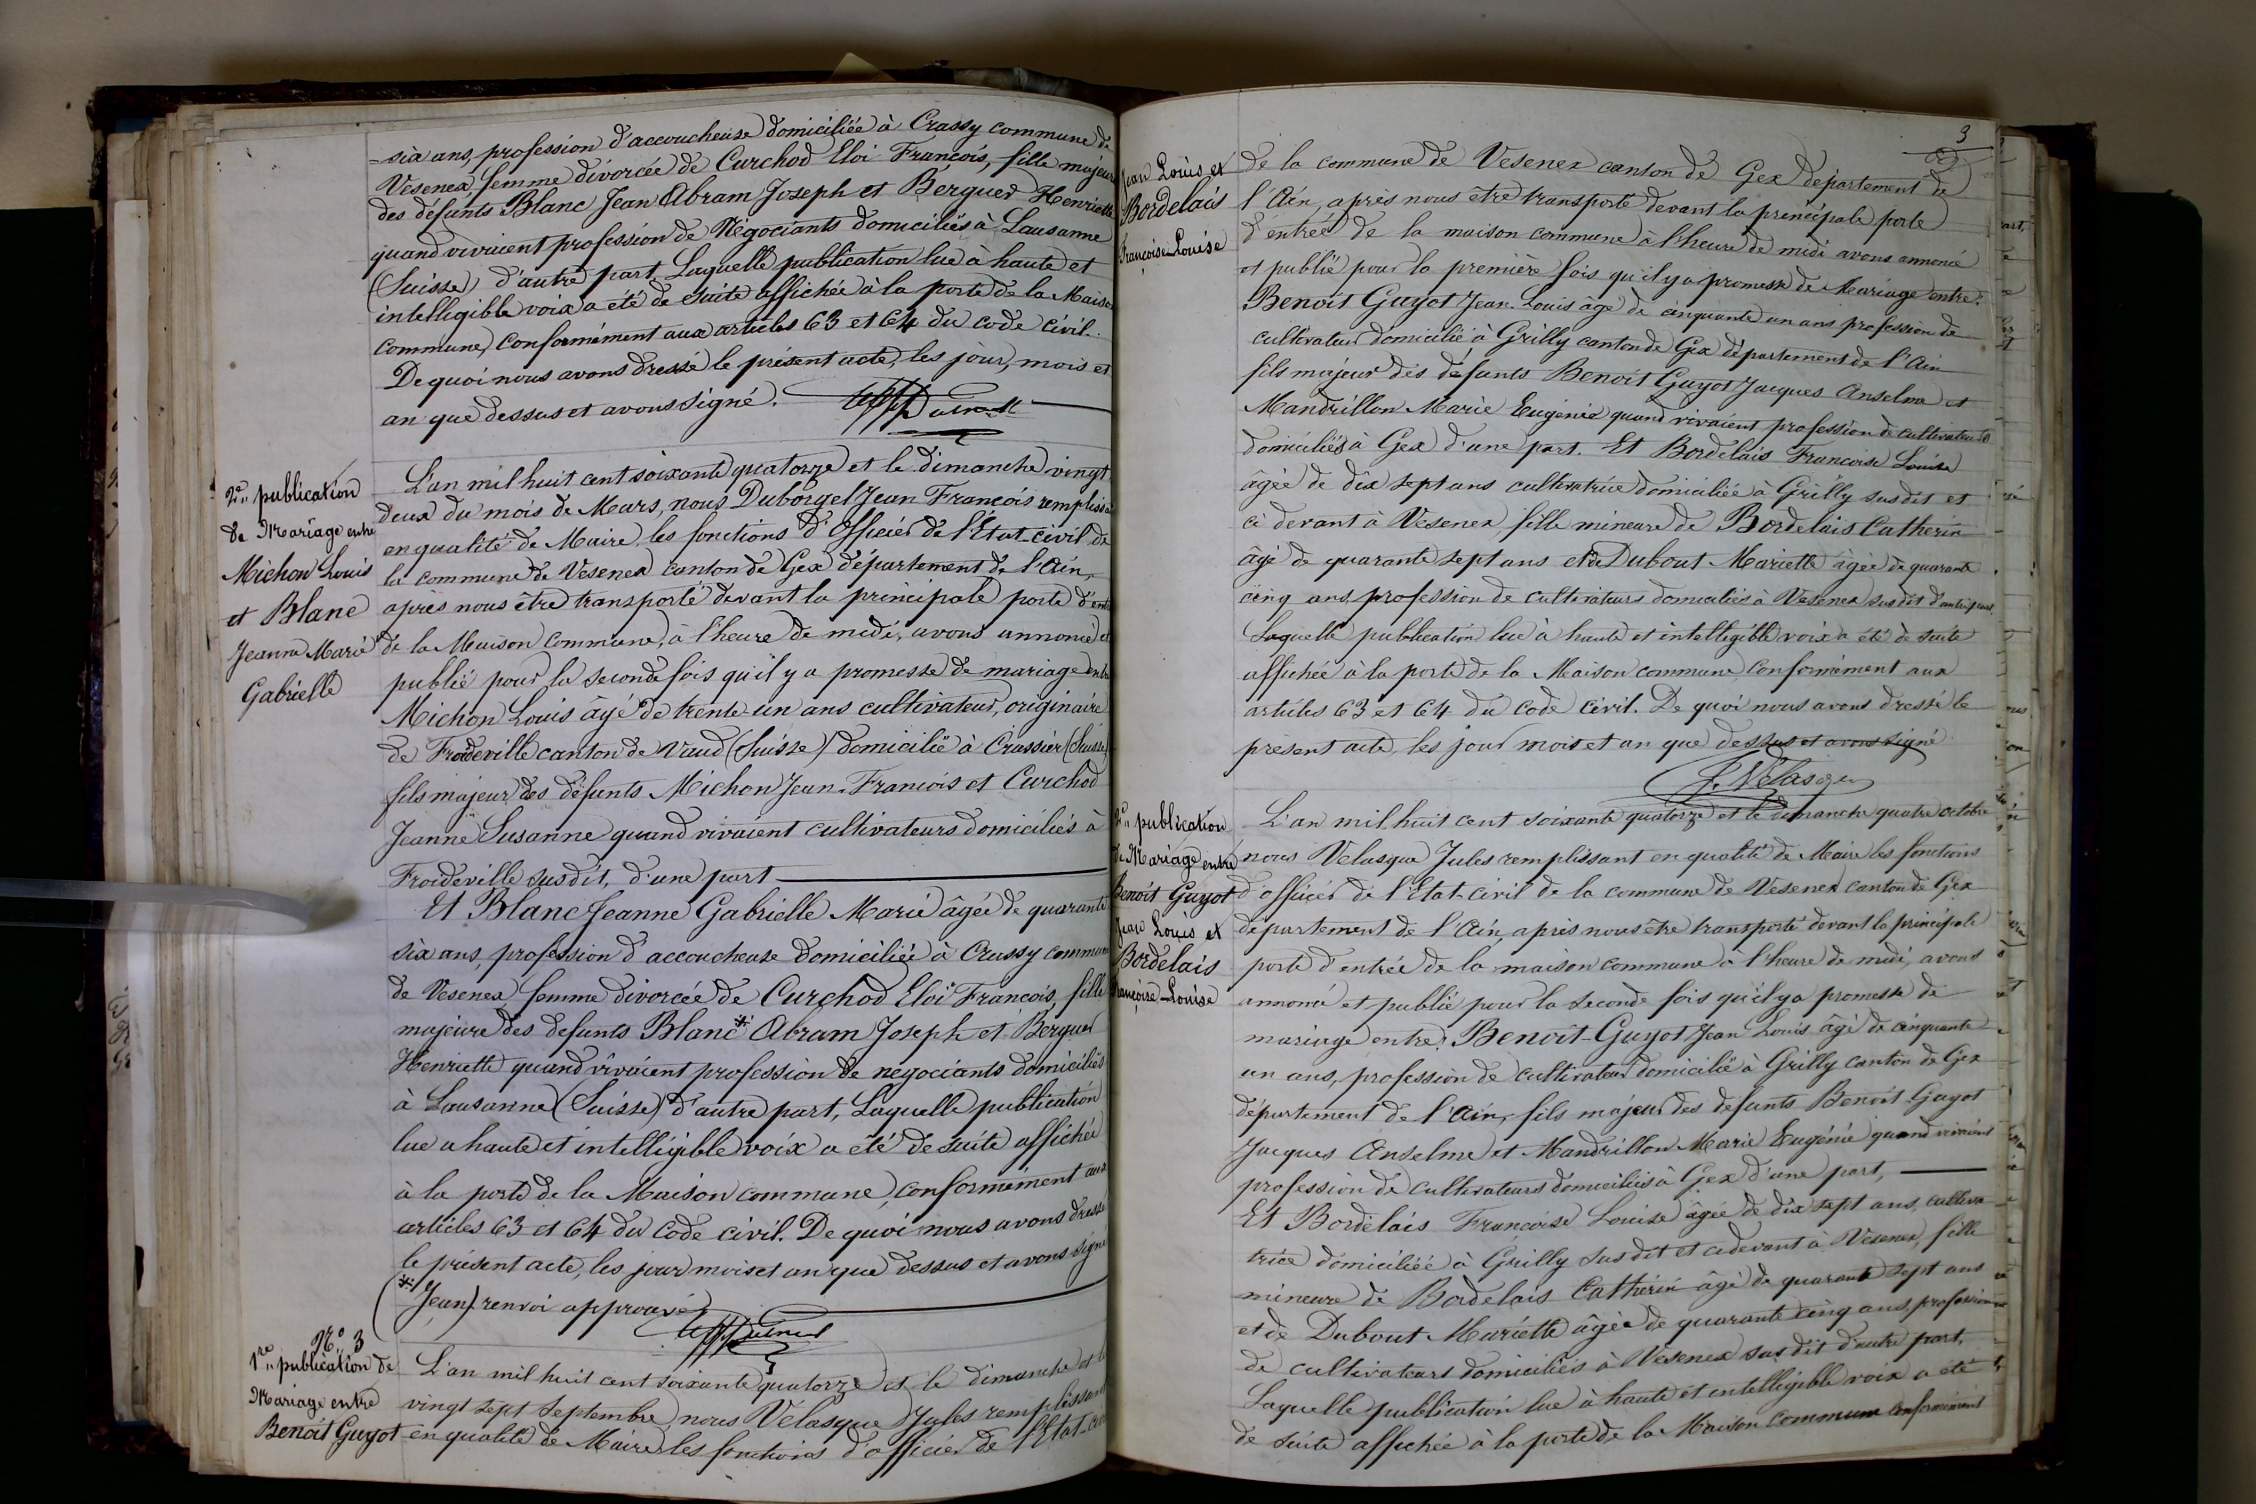 -six ans, profession d'accoucheuse domiciliée à Crassy commune de
Vesenex, femme divorcée de Curchod Eloi François, fille majeure
des défunts Blanc Jean Abram Joseph et Berguer Henriette
quand vivaient profession de Négociants domiciliés à Lausanne
(Suisse) d'autre part, Laquelle publication lue à haute et
intelligible voix a été de suite affichée à la porte de la Maison
commune, conformément aux articles 63 et 64 du code civil.
De quoi nous avons dressé le présent acte, les jour, mois et
an que dessus et avons signé.
2e publication
de Mariage entre
Michon Louis
et Blanc
Jeanne Marie
Gabrielle
L'an mil huit cent soixante quatorze et le dimanche vingt
deux du mois de Mars, nous Duborgel Jean François remplissant
en qualité de Maire les fonctions d'Officier de l'État-civil de
la commune de Vesenex canton de Gex département de l'Ain,
après nous être transporté devant la principale porte d'entrée
de la Maison Commune, à l'heure de midi, avons annoncé et
publié pour la seconde fois qu'il y a promesse de mariage entre
Michon Louis âgé de trente-un ans cultivateur, originaire
de Froideville canton de Vaud (Suisse) domicilié à Crassier (Suisse)
fils majeur des défunts Michon Jean-François et Curchod
Jeanne Susanne quand vivaient cultivateurs domiciliés à
Froideville susdit, d'une part
Et Blanc Jeanne Gabrielle Marie âgée de quarante
six ans, profession d'accoucheuse domiciliée à Crassy commune
de Vesenex femme divorcée de Curchod Eloi François, fille
majeure des défunts Blanc * Abram Joseph et Berguer
Henriette quand vivaient profession de négociants domiciliés
à Lausanne (Suisse) d'autre part, Laquelle publication
lue a haute et intelligible voix a été de suite affichée
à la porte de la Maison commune, conformément aux
articles 63 et 64 du Code civil. De quoi nous avons dressé
le présent acte, les jour mois et an que dessus et avons signé
(* Jean) renvoi approuvé
No 3
1re publication de
Mariage entre
Benoit Guyot
L'an mil huit cent soixante quatorze et le dimanche et le
vingt sept Septembre, nous Velasque Jules remplissant
en qualité de Maire les fonctions d'officier de l'Etat-civil
3
Jean Louis et
Bordelais
Françoise-Louise
de la commune de Vesenex canton de Gex département de
l'Ain, après nous être transporté devant la principale porte
d'entrée de la maison commune à l'heure de midi avons annoncé
et publié pour la première fois qu'il y a promesse de Mariage entre:
Benoit Guyot Jean-Louis âgé de cinquante un ans profession de
cultivateur domicilié à Grilly canton de Gex département de l'Ain
fils majeur des défunts Benoit Guyot Jacques Anselme et
Mandrillon Marie Eugénie quand vivaient profession de cultivateurs
domiciliés à Gex d'une part. Et Bordelais Françoise Louise
âgée de dix sept ans cultivatrice domiciliée à Grilly susdit et
ci devant à Vesenex, fille mineure de Bordelais Catherin
âgé de quarante sept ans et de Dubout Mariette âgée de quarante
cinq ans, profession de cultivateurs domiciliés à Vesenex susdit d'autre part.
Laquelle publication lue à haute et intelligible voix a été de suite
affichée à la porte de la Maison commune, conformément aux
articles 63 et 64 du code civil. De quoi nous avons dressé le
présent acte, les jour mois et an que dessus et avons signé
J. Velasque
2e publication
de Mariage entre
Benoit Guyot
Jean Louis et
Bordelais
Françoise-Louise
L'an mil huit cent soixante quatorze et le dimanche quatre octobre
nous Velasque Jules remplissant en qualité de Maire les fonctions
d'officier de l'Etat-civil de la commune de Vesenex canton de Gex
département de l'Ain, après nous être transporté devant la principale
porte d'entrée de la maison commune à l'heure de midi, avons
annoncé et publié pour la seconde fois qu'il y a promesse de
mariage entre: Benoit-Guyot Jean Louis âgé de cinquante
un ans, profession de cultivateur domicilié à Grilly canton de Gex
département de l'Ain, fils majeur des défunts Benoit Guyot
Jacques Anselme et Mandrillon Marie Eugénie quand vivaient
profession de cultivateurs domiciliés à Gex d'une part,
Et Bordelais Françoise Louise âgée de dix sept ans, cultiva-
trice domiciliée à Grilly susdit et cidevant à Vesenex, fille
mineure de Bordelais Catherin âgé de quarante sept ans
et de Dubout Mariette âgée de quarante cinq ans, profession
de cultivateurs domiciliés à Vesenex susdit d'autre part,
Laquelle publication lue à haute et intelligible voix a été
de suite affichée à la porte de la Maison commune conformément